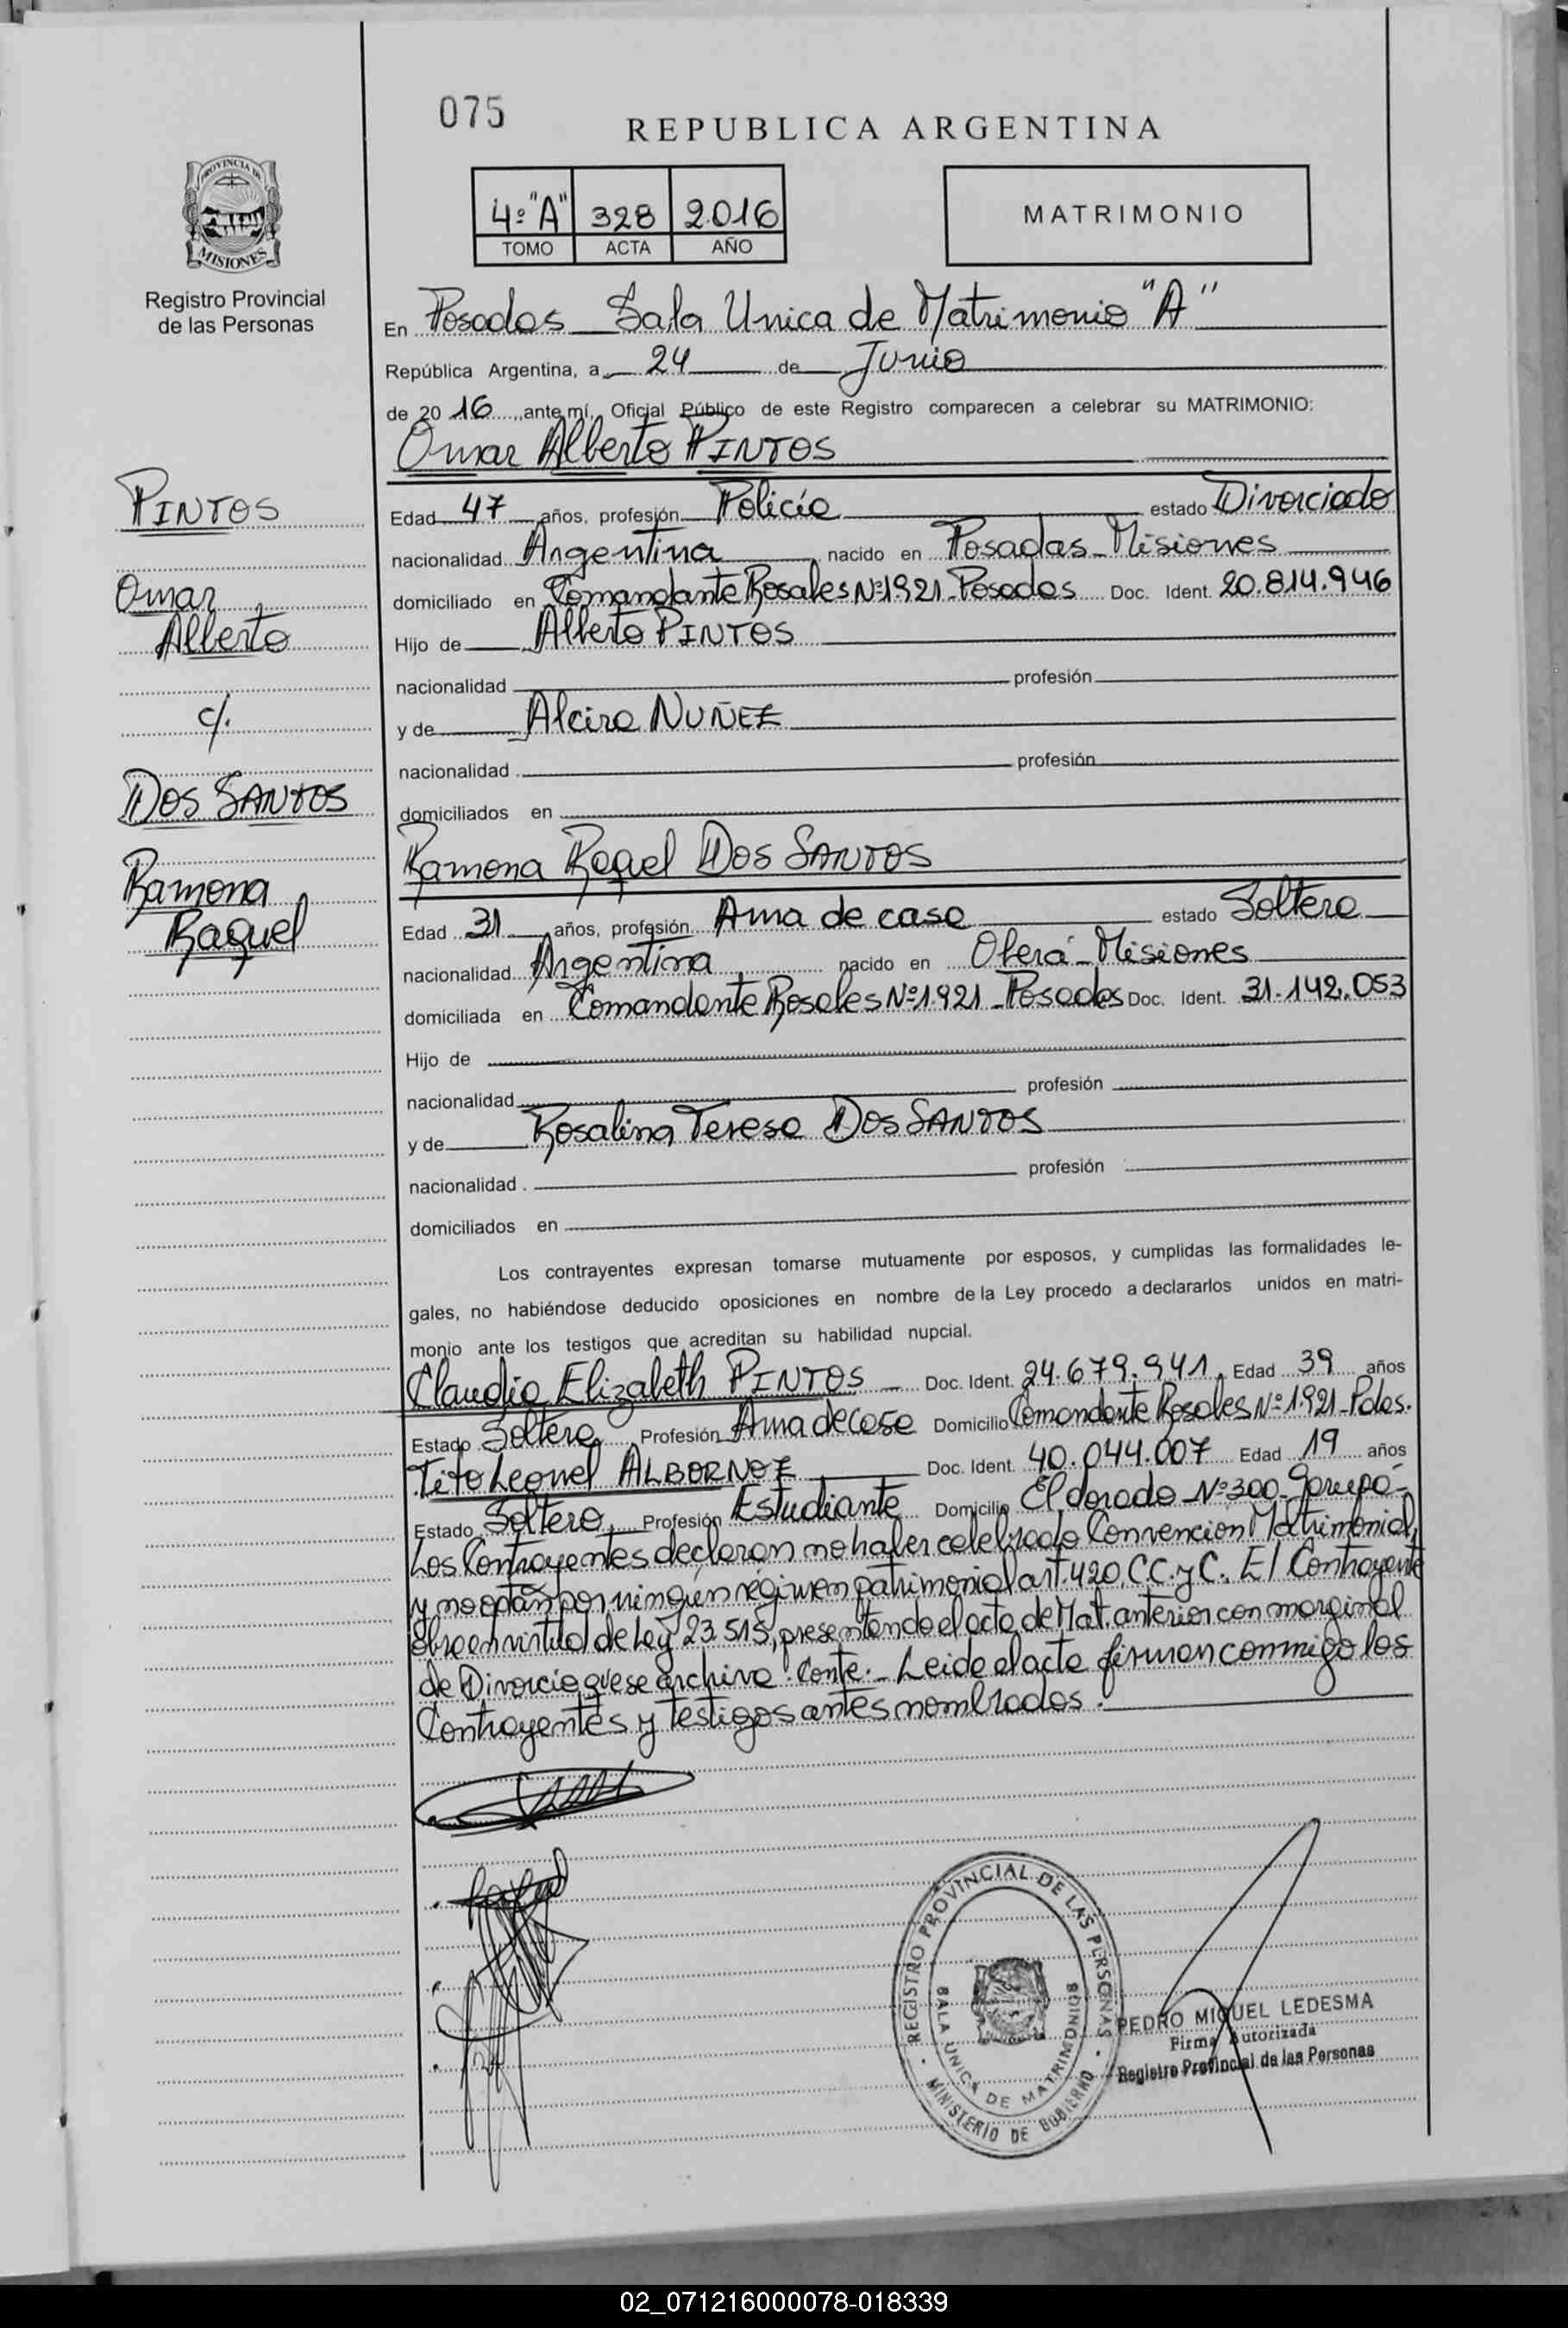 075
REPUBLICA ARGENTINA
4º "A" 328 2016
TOMO ACTA AÑO
MATRIMONIO
PROVINCIA DE
MISIONES
Registro Provincial
de las Personas
En Posadas Sala Unica de Matrimonio "A"
República Argentina, a 24 de Junio
de 2016, ante mí, Oficial Público de este Registro comparecen a celebrar su MATRIMONIO:
Omar Alberto PINTOS
PINTOS
Omar
Alberto
c/.
DOS SANTOS
Ramona
Raquel
Edad 47 años, profesión Policía estado Divorciado
nacionalidad Argentina nacido en Posadas - Misiones
domiciliado en Comandante Rosales Nº 1921 - Posadas Doc. Ident. 20.814.946
Hijo de Alberto PINTOS
nacionalidad profesión
y de Alcira NUÑEZ
nacionalidad profesión
domiciliados en
Ramona Raquel DOS SANTOS
Edad 31 años, profesión Ama de casa estado Soltera
nacionalidad Argentina nacido en Oberá - Misiones
domiciliada en Comandante Rosales Nº 1921 - Posadas Doc. Ident. 31.142.053
Hijo de
nacionalidad profesión
y de Rosalina Teresa DOS SANTOS
nacionalidad profesión
domiciliados en
Los contrayentes expresan tomarse mutuamente por esposos, y cumplidas las formalidades le-
gales, no habiéndose deducido oposiciones en nombre de la Ley procedo a declararlos unidos en matri-
monio ante los testigos que acreditan su habilidad nupcial.
Claudia Elizabeth PINTOS Doc. Ident. 24.679.941 Edad 39 años
Estado Soltera Profesión Ama de casa Domicilio Comandante Rosales Nº 1921 - Pdas.
Tito Leonel ALBORNOZ Doc. Ident. 40.044.007 Edad 19 años
Estado Soltero Profesión Estudiante Domicilio El dorado Nº 300 - Garupá -
Los Contrayentes declaran no haber celebrado Convencion Matrimonial,
y no optan por ningún régimen patrimonial art. 420 C.C. y C. El Contrayente
obra en virtud de Ley 23.515, presentando el acta de Mat. anterior con marginal
de Divorcio que se archiva. Conte.- Leida el acta firman conmigo los
Contrayentes y testigos antes nombrados.
REGISTRO PROVINCIAL DE LAS PERSONAS
SALA UNICA DE MATRIMONIOS
MINISTERIO DE GOBIERNO
PEDRO MIGUEL LEDESMA
Firma Autorizada
Registro Provincial de las Personas
02_071216000078-018339